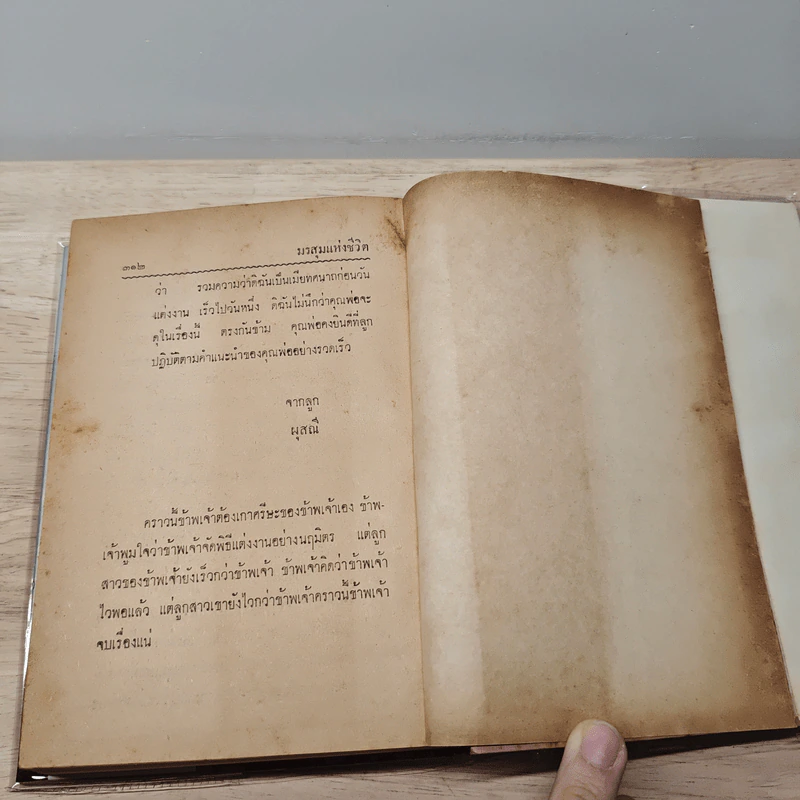 ๓๑๒ มรสุมแห่งชีวิต
ว่า รวมความว่าดิฉันเป็นเมียทศนาถก่อนวัน
แต่งงาน เร็วไปวันหนึ่ง ดิฉันไม่นึกว่าคุณพ่อจะ
ดุในเรื่องนี้ ตรงกันข้าม คุณพ่อคงยินดีที่ลูก
ปฏิบัติตามคำแนะนำของคุณพ่ออย่างรวดเร็ว
จากลูก
ผุสณี
คราวนี้ข้าพเจ้าต้องเกาศรีษะของข้าพเจ้าเอง ข้าพ-
เจ้าพูมใจว่าข้าพเจ้าจัดพิธีแต่งงานอย่างนฤมิตร แต่ลูก
สาวของข้าพเจ้ายังเร็วกว่าข้าพเจ้า ข้าพเจ้าคิดว่าข้าพเจ้า
ไวพอแล้ว แต่ลูกสาวเขายังไวกว่าข้าพเจ้าคราวนี้ข้าพเจ้า
จบเรื่องแน่